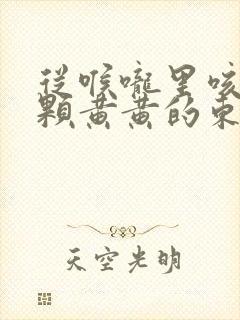 從喉嚨里咳
顆黃黃的東
天空光明